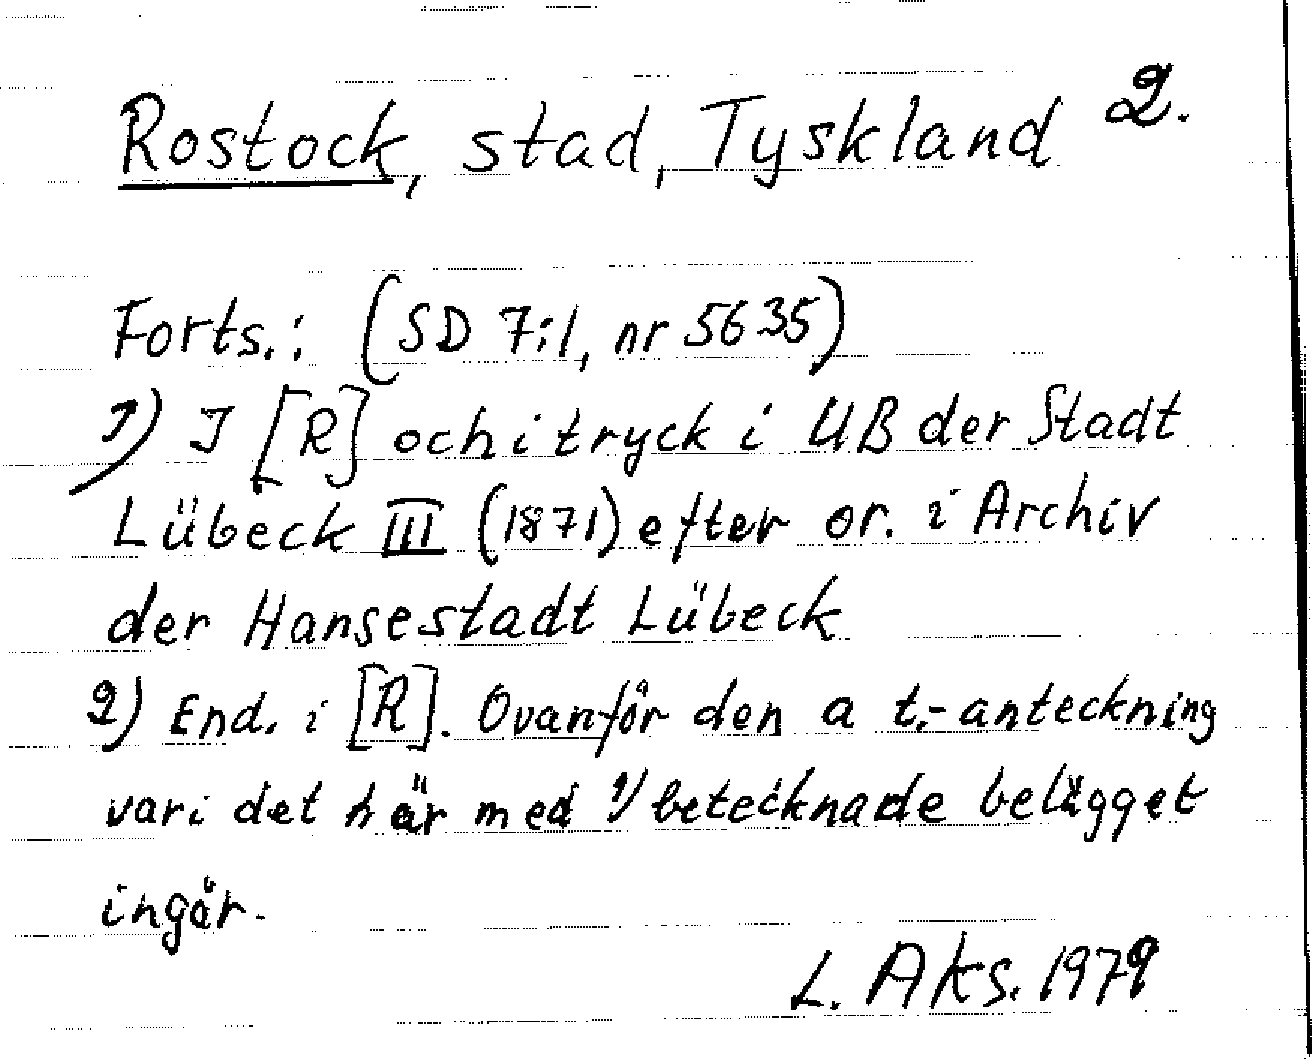 Rostock, stad, Tyskland 2.
Forts.: (SD 7:1, nr 5635)
1) I [R] och i tryck i UB der Stadt
Lübeck III (1871) efter or. i Archiv
der Hansestadt Lübeck
2) End. i [R]. Ovanför den a t.-anteckning
vari det här med 1) betecknade belägget
ingår.
L. Aks. 1979